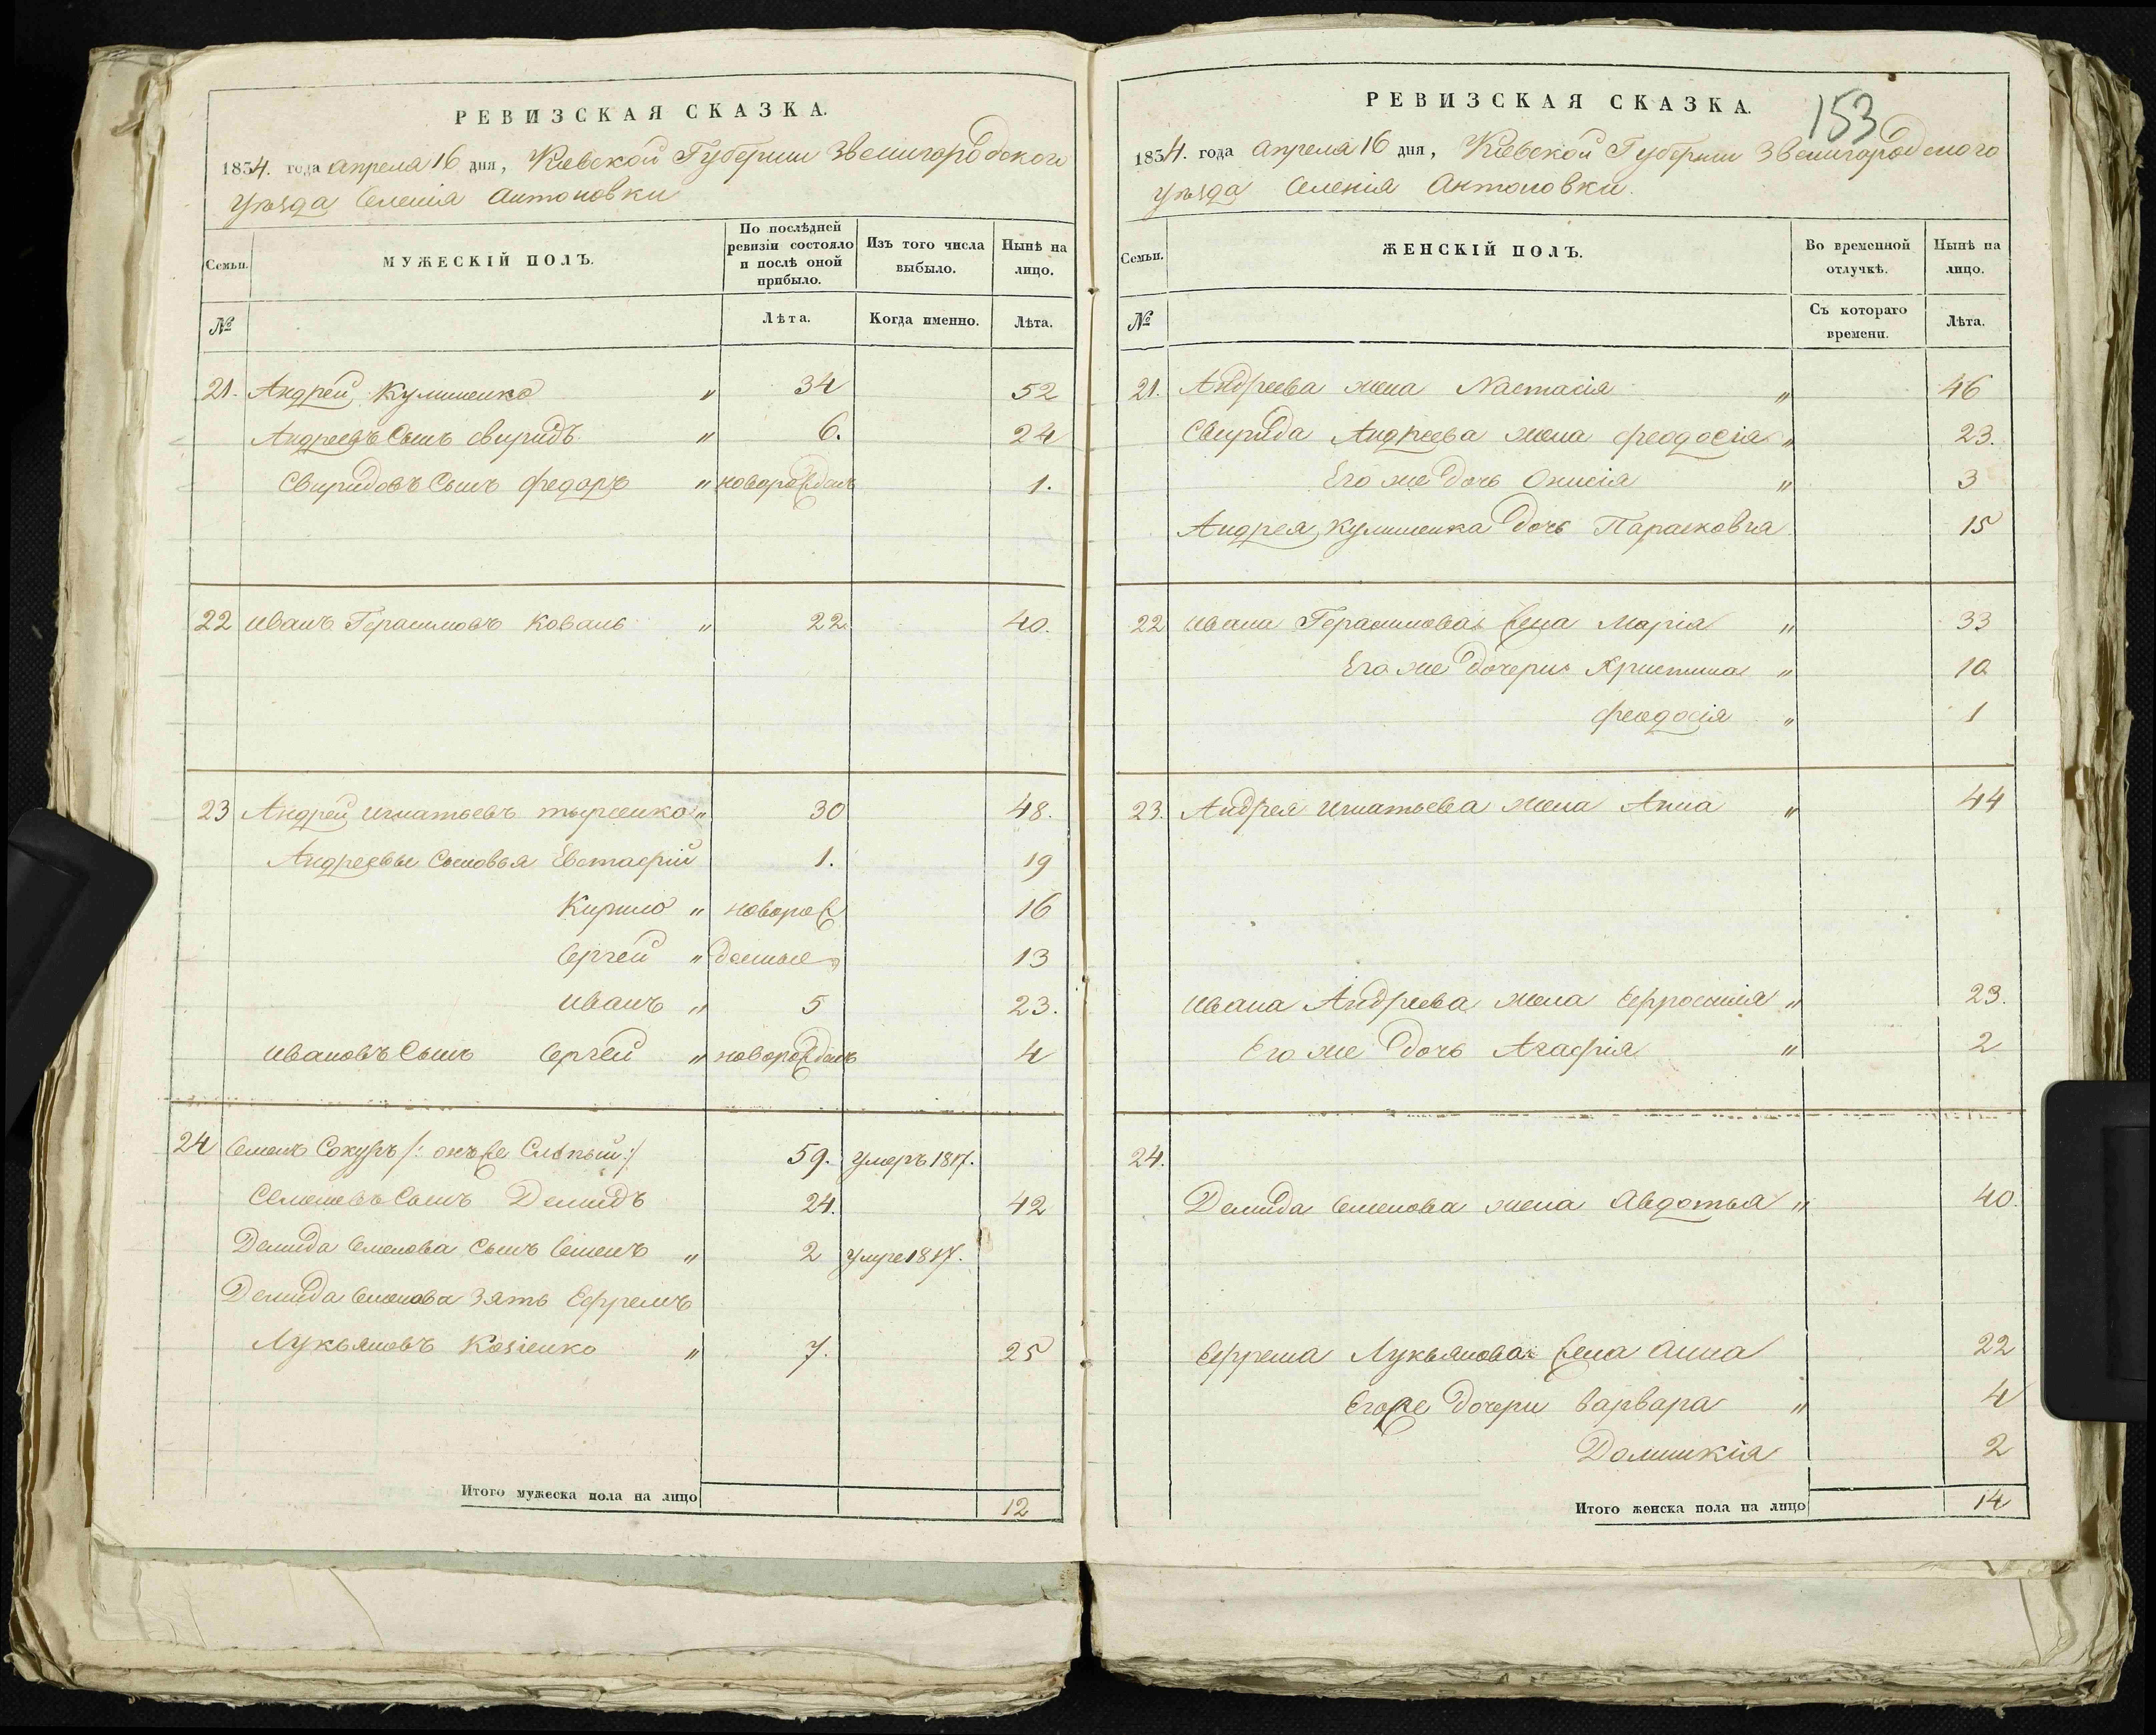 РЕВИЗСКАЯ СКАЗКА.
1854. года апреля 16 дня, Кіевской Губерніи Звенигородского
уѣзда Селенія Антоновки
Семьи. МУЖЕСКІЙ ПОЛЪ. По послѣдней ревизіи состояло и послѣ оной прибыло. Изъ того числа выбыло. Нынѣ на лицо.
№ Лѣта. Когда именно. Лѣта.
21. Андрей Кулишенко " 34 52
Андреевъ Сынъ Свиридъ " 6. 24
Свиридовъ Сынъ Федоръ " новорожденъ 1.
22 Иванъ Герасимовъ Коваль " 22 40.
23 Андрей Игнатьевъ " 30 48.
Андреевы Сыновья Евстафій 1. 19
Кирило " новорож 16
Сергей " денные 13
Иванъ " 5 23.
Ивановъ Сынъ Сергей " новорожденъ 4
24 Семенъ Сокуръ /: онъ же Слѣпый :/ 59. умеръ 1817.
Семеновъ Сынъ Демидъ 24. 42
Демида Семенова Сынъ Семенъ " 2 умре 1817.
Демида Семенова Зять Ефремъ
Лукьяновъ " 7. 25
Итого мужеска пола на лицо 12
153
РЕВИЗСКАЯ СКАЗКА.
1854. года апреля 16 дня, Кіевской Губерніи Звенигородского
уѣзда Селенія Антоновки.
Семьи. ЖЕНСКІЙ ПОЛЪ. Во временной отлучкѣ. Нынѣ на лицо.
№ Съ котораго времени. Лѣта.
21. Андреева жена Настасія " 46
Свирида Андреева жена Феодосія " 23.
Его же дочь Онисія " 3
Андрея Кулишенка дочь Парасковія 15
22 Ивана Герасимова жена Марія " 33
Его же дочери Христина " 10
Феодосія " 1
23. Андрея Игнатьева жена Анна " 44
Ивана Андреева жена Ефросинія " 23.
Его же дочь Агафія " 2
24.
Демида Семенова жена Авдотья " 40.
Ефрема Лукьянова жена Анна 22
Егоже дочери Варвара " 4
Домникія 2
Итого женска пола на лицо 14